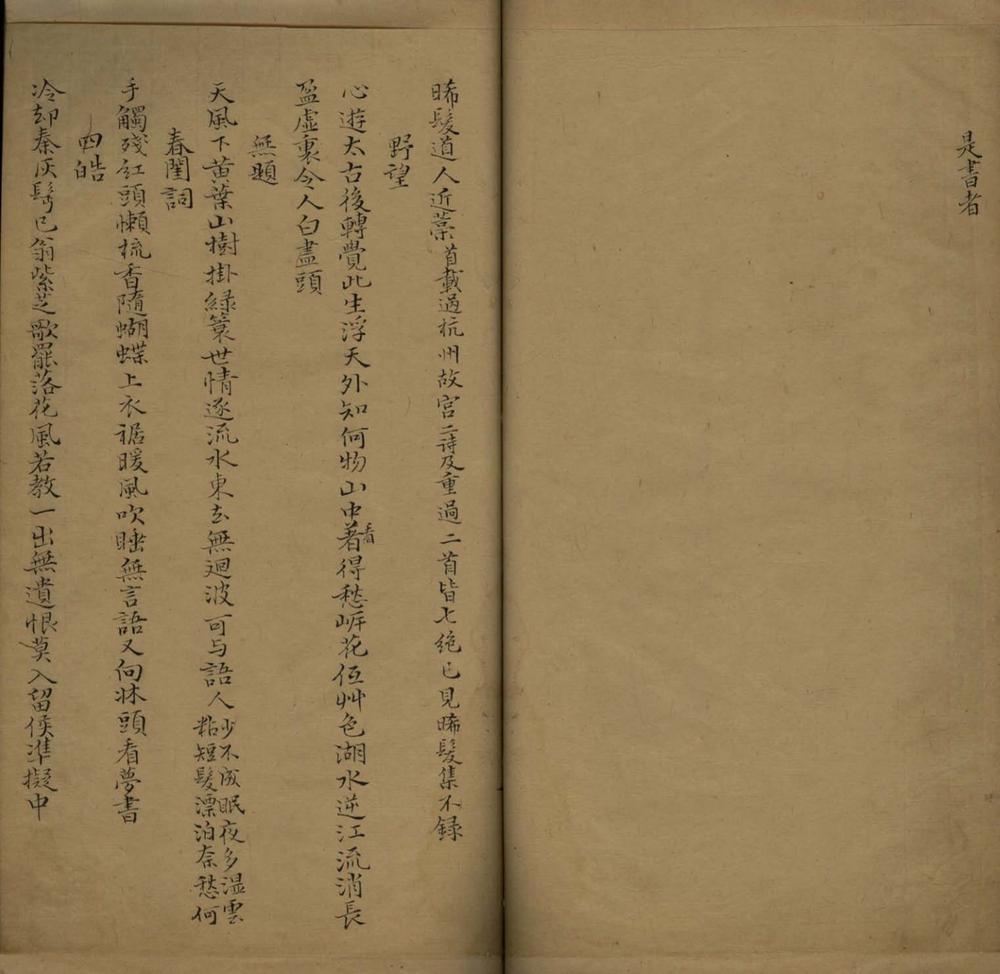 是書者
晞髮道人近藁首載過杭州故宮二诗及重過二首皆七绝已見晞髮集不録
野望
心遊太古後轉覺此生浮天外知何物山中著看得愁岸花伍艸色湖水逆江流消長
盈虛裏令人白盡頭
無題
天風下黄葉山樹掛緑蓑世情逐流水東去無廻波可与語人少不成眠夜多湿雲
粘短髮漂泊奈愁何
春閨詞
手觸殘紅頭懶梳香隨蝴蝶上衣裾暖風吹睡無言語又向牀頭看夢書
四皓
冷却秦灰髩已翁紫芝歌罷落花風若教一出無遺恨莫入留侯準擬中